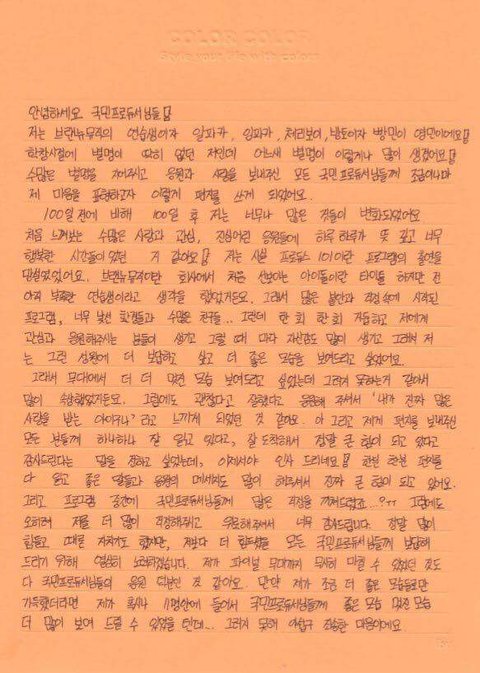 COLOR COLOR
Style your life with colors
안녕하세요 국민프로듀서님들!!
저는 브랜뉴뮤직의 연습생이자 알파카, 임파카, 처리보이, 방도이자 빵민이 영민이에요!!
학창시절에 별명이 딱히 없던 저인데 어느새 별명이 이렇게나 많이 생겼어요!!
수많은 별명을 지어주시고 응원과 사랑을 보내주신 모든 국민프로듀서님들께 조금이나마
제 마음을 표현하고자 이렇게 편지를 쓰게 되었어요.
100일 전에 비해 100일 후 저는 너무나 많은 것들이 변화되었어요
처음 느껴보는 수많은 사랑과 관심, 진심어린 응원들에 하루하루가 뜻 깊고 너무
행복한 시간들이었던 거 같아요!! 저는 사실 프로듀스 101이란 프로그램의 출연을
망설였었어요. 브랜뉴뮤직이란 회사에서 처음 선보이는 아이돌이란 타이틀 하지만 전
아직 부족한 연습생이라고 생각을 했었거든요. 그래서 많은 불안과 걱정 속에 시작된
프로그램, 너무 낯선 환경들과 수많은 친구들... 그런데 한 회 한 회 거듭하고 저에게
관심과 응원해주시는 분들이 생기고 그럴 때 마다 자신감도 많이 생기고 그래서 저
는 그런 성원에 더 보답하고 싶고 더 좋은 모습을 보여드리고 싶었어요.
그래서 무대에서 더 더 멋진 모습 보여드리고 싶었는데 그러지 못하는거 같아서
많이 속상했었거든요. 그럼에도 괜찮다고 잘했다고 응원해 주셔서 '내가 진짜 많은
사랑을 받는 아이구나' 라고 느끼게 되었던 것 같아요. 아 그리고 제게 편지를 보내주신
모든 분들께 하나하나 잘 읽고 있다고, 잘 도착해서 정말 큰 힘이 되고 있다고
감사드린다는 말을 전하고 싶었는데, 이제서야 인사 드리네요!! 한분 한분 편지를
다 읽고 좋은 말들과 응원의 메세지도 많이 해주셔서 진짜 큰 힘이 되고 있어요.
그리고 프로그램 중간에 국민프로듀서님들께 많은 걱정을 끼쳐드렸죠...?ㅠㅠ 그럼에도
오히려 저를 더 많이 걱정해주시고 위로해주셔서 너무 감사드립니다. 정말 많이
힘들고 때론 지치기도 했지만, 저보다 더 힘써주신 모든 국민프로듀서님들께 보답해
드리기 위해 열심히 노력하였습니다. 제가 파이널 무대까지 무사히 마칠 수 있었던 것도
다 국민프로듀서님들의 응원 덕분인 것 같아요. 만약 제가 조금 더 좋은 모습들로만
가득했더라면 제가 혹시나 11명안에 들어서 국민프로듀서님들께 좋은 모습 멋진 모습
더 많이 보여 드릴 수 있었을 텐데... 그러지 못해 아쉽고 죄송한 마음이에요.